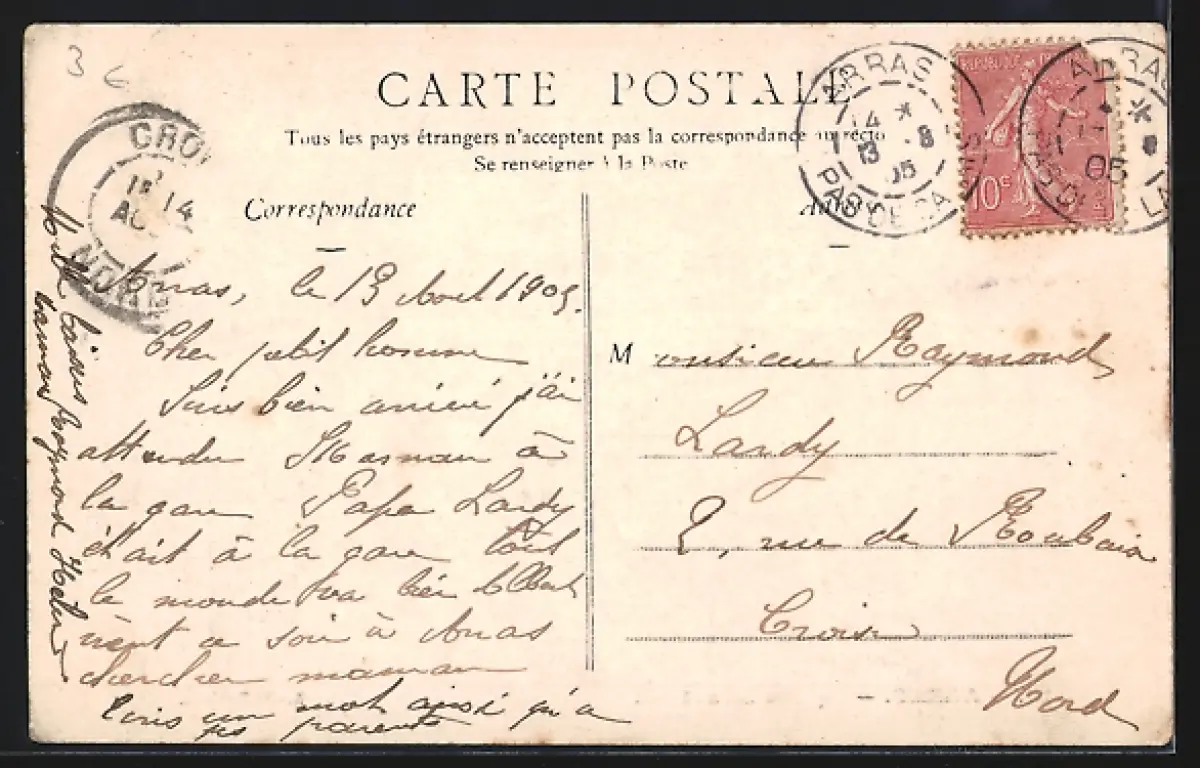 3 6
CARTE POSTALE
Tous les pays étrangers n'acceptent pas la correspondance au recto
Se renseigner à la Poste
Correspondance
Arras, le 13 Aout 1905.
Cher petit homme
Suis bien arrivé j'ai
attendu Maman à
la gare Papa Lardy
était à la gare Tout
le monde va bien Albert
vient ce soir à Arras
chercher maman
Ecris un mot ainsi qu'a
parents
Mille baisers Raymond
ARRAS
14 *
13 8
05
PAS DE CA
REPUBLIQUE
10c
ARRAS
*
05
CROI
14
AO
NORD
M onsieur Raymond
Lardy
2, rue de Roubaix
Croix
Nord